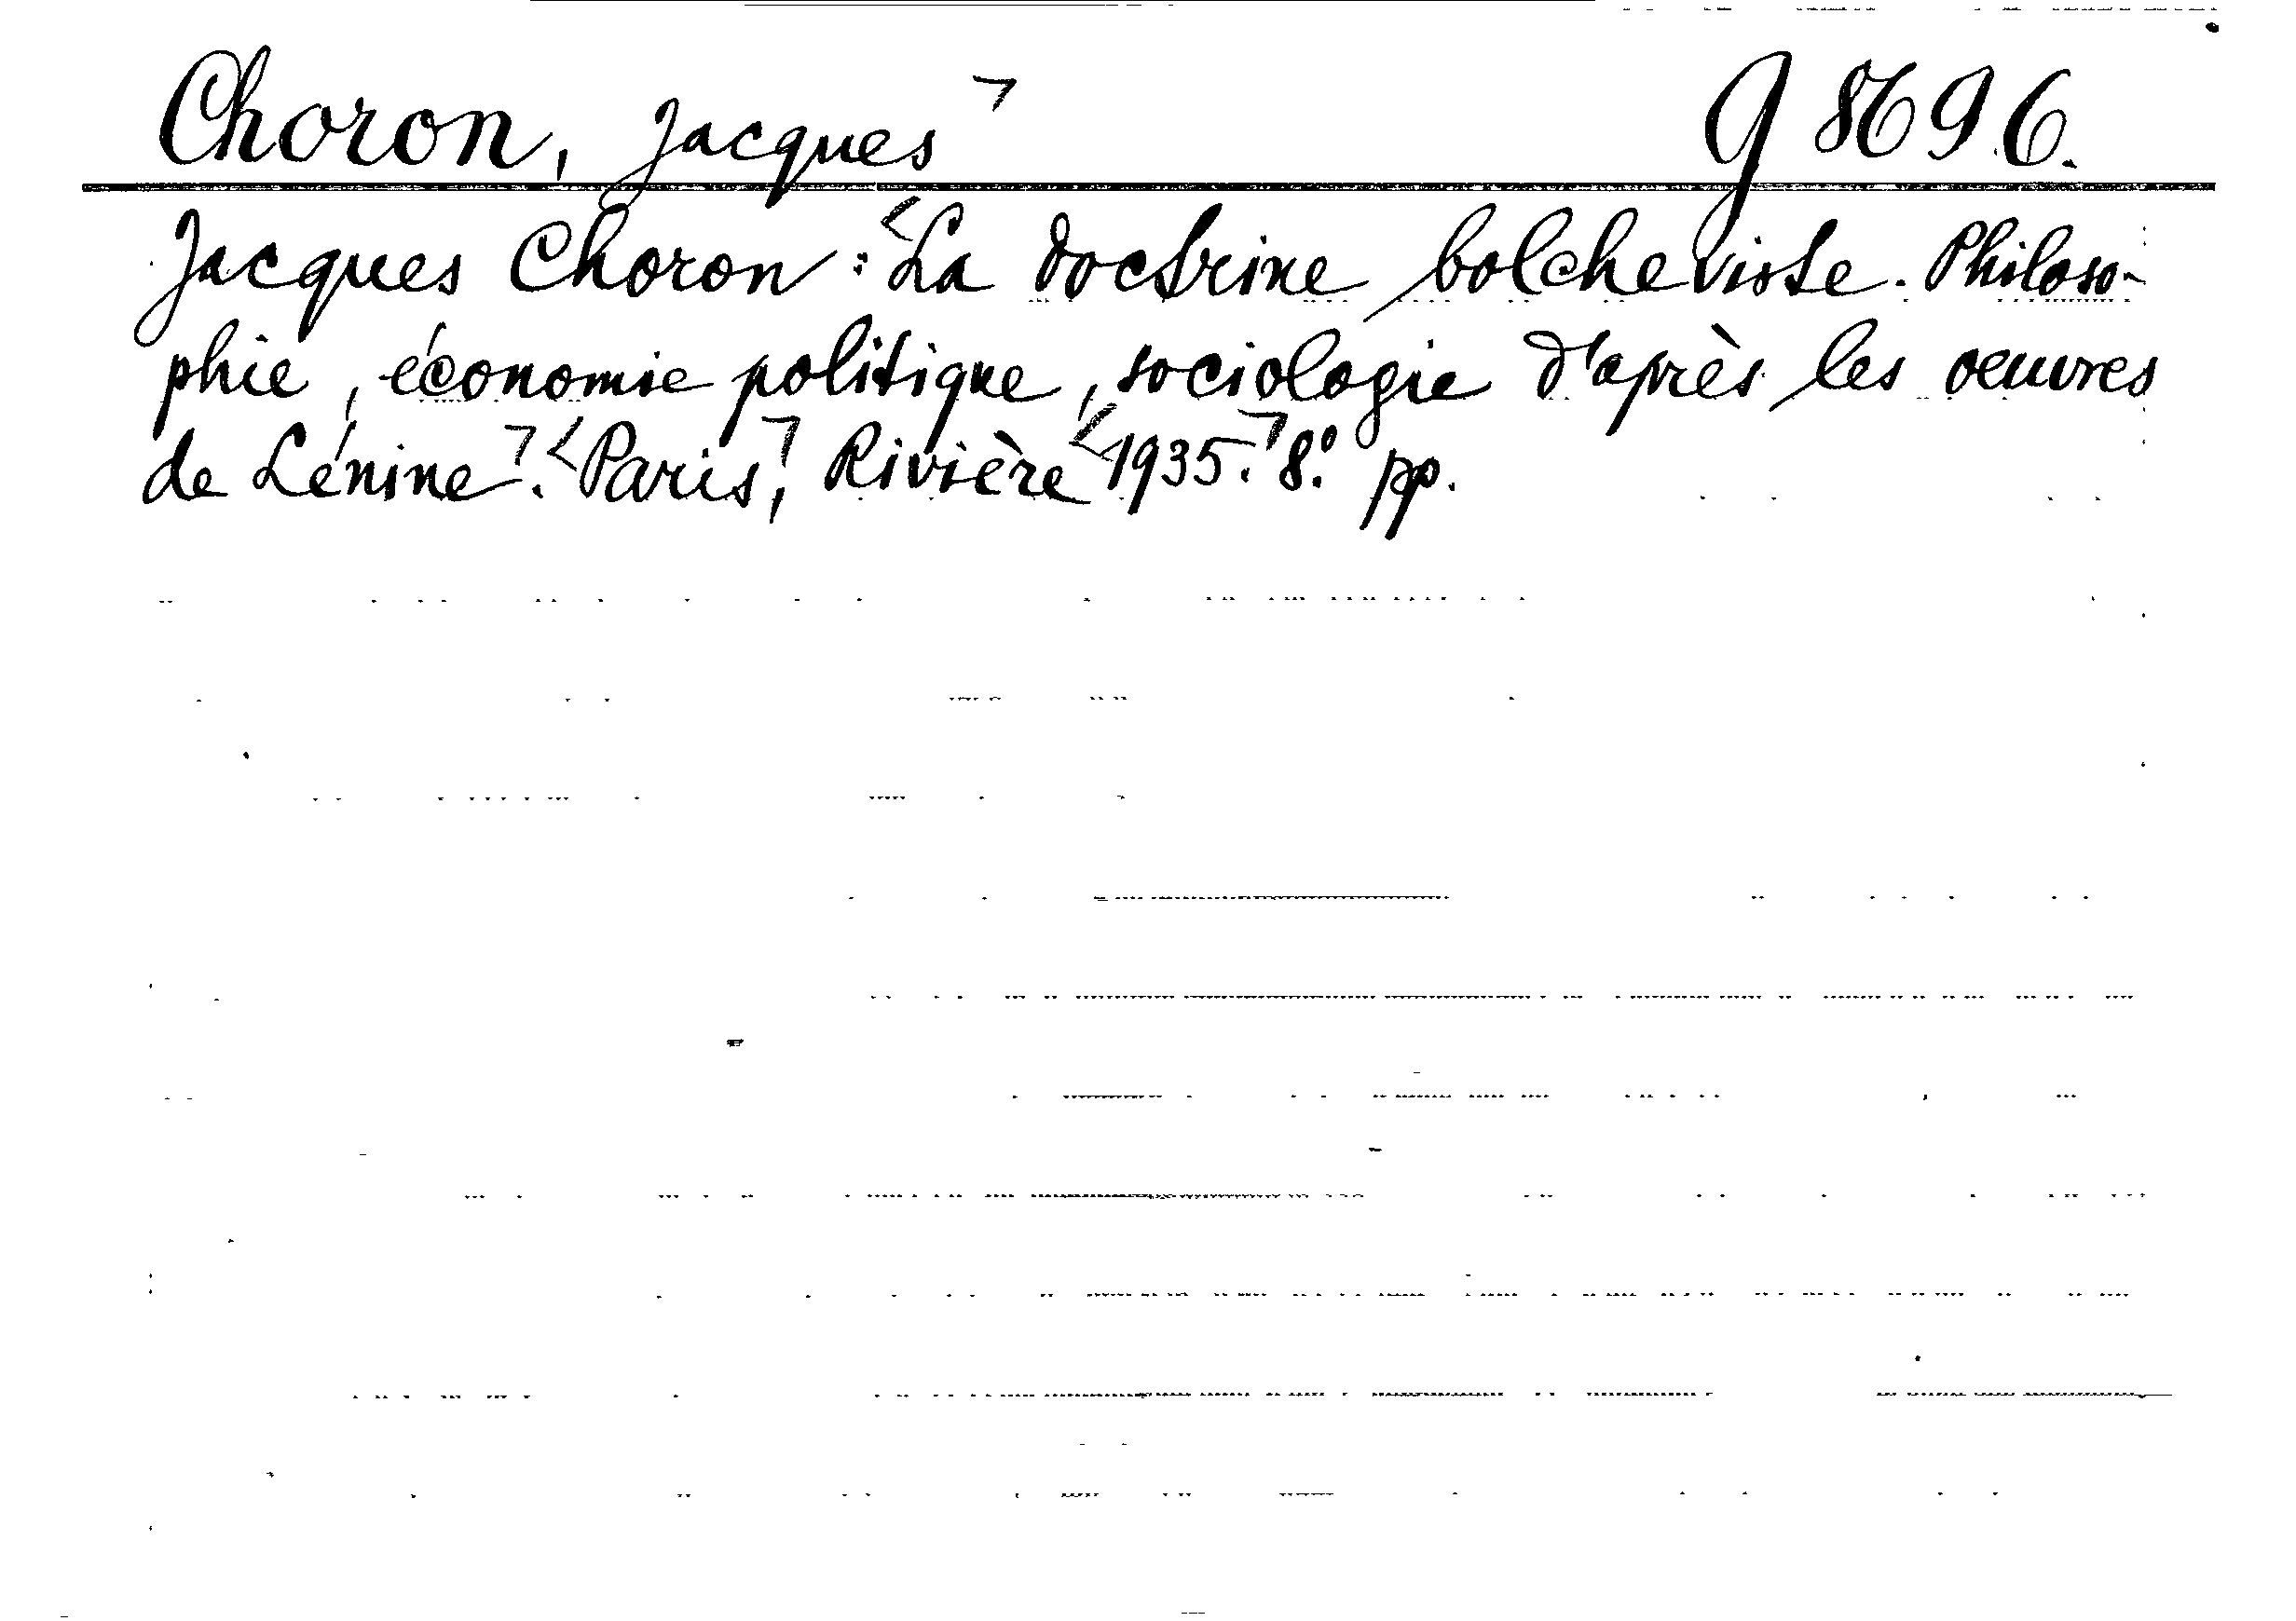 Choron, Jacques g 8696.
Jacques Choron: La doctrine bolcheviste. Philoso-
phie, économie politique, sociologie d'après les oeuvres
de Lénine. Paris, Rivière 1935. 8° pp.